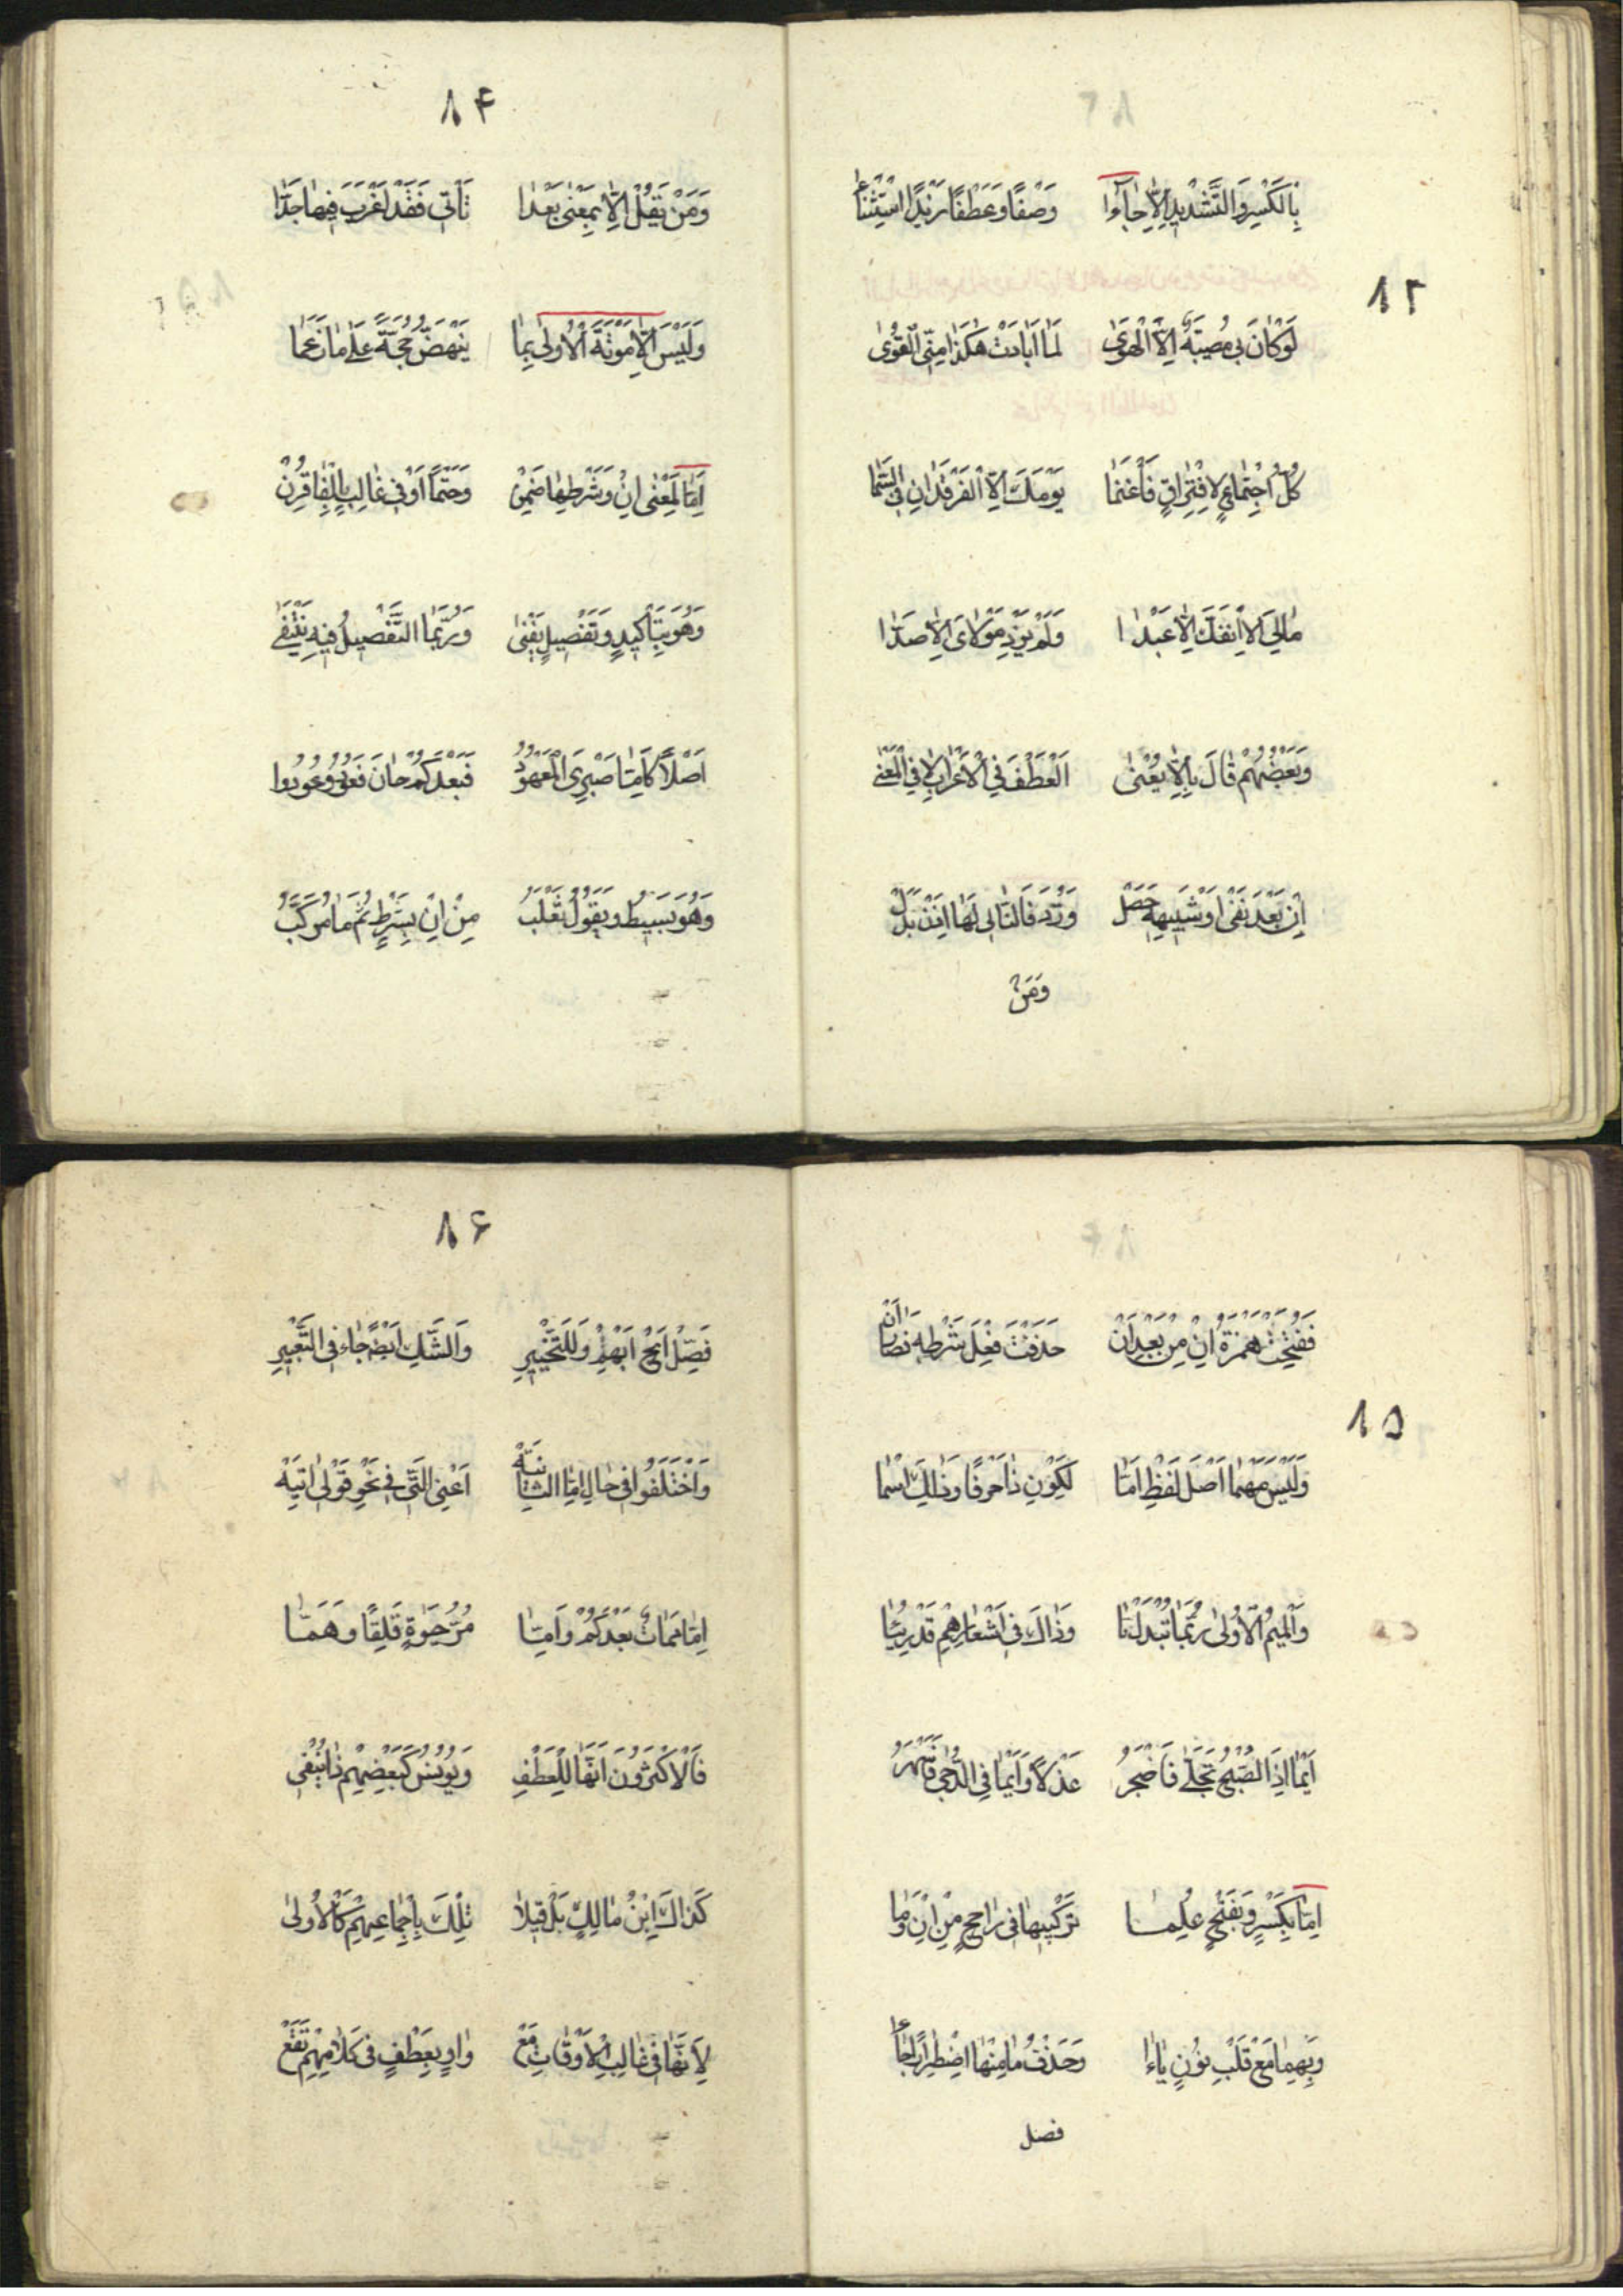 ٨٣
بِالْكَسْرِ وَالتَّشْدِيدِ اِلّا جَاۤءُوا وَصْفًا وَعَطْفًا زَيْدًا اسْتِثْنَاءُ
لَوْ كَانَ بِي مُصِيبَةٌ اِلَّا الْهَوٰى لَمَا اَبَادَتْ هٰكَذَا مِنِّي الْقُوٰى
كُلُّ اجْتِمَاعٍ لِافْتِرَاقٍ فَاغْنَمَا يَوْمَكَ اِلَّا الْفَرْقَدَانِ فِي السَّمَا
مَالِيَ لَا اَنْفَكُّ اِلَّا عَبْدًا وَلَمْ يَزِدْ مَوْلَايَ اِلَّا صَدًّا
وَبَعْضُهُمْ قَالَ بِاِلَّا يُعْنٰى اَلْعَطْفَ فِي الْاَعْرَابِ لَا فِي الْمَعْنٰى
اِنْ بَعْدَ نَفْيٍ اَوْ شَبِيهِهِ حَصَلْ وَرُدَّ فَالتَّالِي لَهَا اِذَنْ بَدَلْ
وَمَنْ
٨۴
وَمَنْ يَقُلْ اِلَّا بِمَعْنٰى بَعْدَا تَأْتِي فَقَدْ اَغْرَبَ فِيهَا جِدَّا
وَلَيْسَ اِلَّا مَوْتَةَ الْاُولٰى بِمَا يَنْهَضُ حُجَّةً عَلٰى مَا زَعَمَا
اِمَّا لِمَعْنٰى اِنْ وَشَرْطِهَا ضَمِنْ وَحَتْمًا اَوْ فِي غَالِبٍ بِالْفَا قُرِنْ
وَهُوَ بِتَأْكِيدٍ وَتَفْصِيلٍ يَفِي وَرُبَّمَا التَّفْصِيلُ فِيهِ يَنْتَفِي
اَصْلًا كَاَمَّا صَبْرِيَ الْمَعْهُودُ فَبَعْدَكُمْ خَانَ فَعُودُوا عُودُوا
وَهُوَ بَسِيطٌ وَيَقُولُ ثَعْلَبُ مِنْ اِنْ بِشَرْطٍ ثُمَّ مَا مُرَكَّبُ
٨۵
فَفُتِحَتْ هَمْزَةُ اِنْ مِنْ بَعْدِ اَنْ حَذَفْتَ فِعْلَ شَرْطِهِ فَصَارَ اَنْ
وَلَيْسَ مَهْمَا اَصْلَ لَفْظِ اَمَّا لِكَوْنِ ذَا حَرْفًا وَذَلِكَ اسْمَا
وَالْمِيمُ الْاُولٰى رُبَّمَا تُبْدَلُ يَا وَذَاكَ فِي اَشْعَارِهِمْ قَدْ رُئِيَا
اَيْمَا اِذَا الصُّبْحُ تَجَلّٰى فَاَضْجَرُ عَذْلًا وَاَيْمَا فِي الدُّجٰى فَاَسْهَرُ
اِمَّا بِكَسْرٍ وَبِفَتْحٍ عُلِمَا تَرْكِيبُهَا فِي رَاجِحٍ مِنْ اِنْ وَمَا
وَبِهِمَا مَعْ قَلْبِ نُونٍ يَاءًا وَحَذْفُ مَا مِنْهَا اضْطِرَارًا جَاءَ
فصل
٨۶
فَصِّلْ اَبِحْ اَبْهِمْ وَلِلتَّخْيِيرِ وَالشَّكِ اَيْضًا جَاءَ فِي التَّعْبِيرِ
وَاخْتَلَفُوا فِي حَالِ اِمَّا الثَّانِيَهْ اَعْنِي الَّتِي فِي نَحْوِ قَوْلِي اٰتِيَهْ
اِمَّا مَمَاتٌ بَعْدَكُمْ وَاِمَّا مُرُّ حَيٰوةٍ قَلِقًا وَهَمَّا
فَالْاَكْثَرُونَ اَنَّهَا لِلْعَطْفِ وَيُونُسٌ كَبَعْضِهِمْ ذَا يَنْفِي
كَذَاكَ اِبْنُ مَالِكٍ بَلْ قِيلَا تِلْكَ بِاِجْمَاعِهِمْ كَالْاُولٰى
لِاَنَّهَا فِي غَالِبِ الْاَوْقَاتِ مَعْ وَاوٍ بِعَطْفٍ فِي كَلَامِهِمْ تَقَعْ